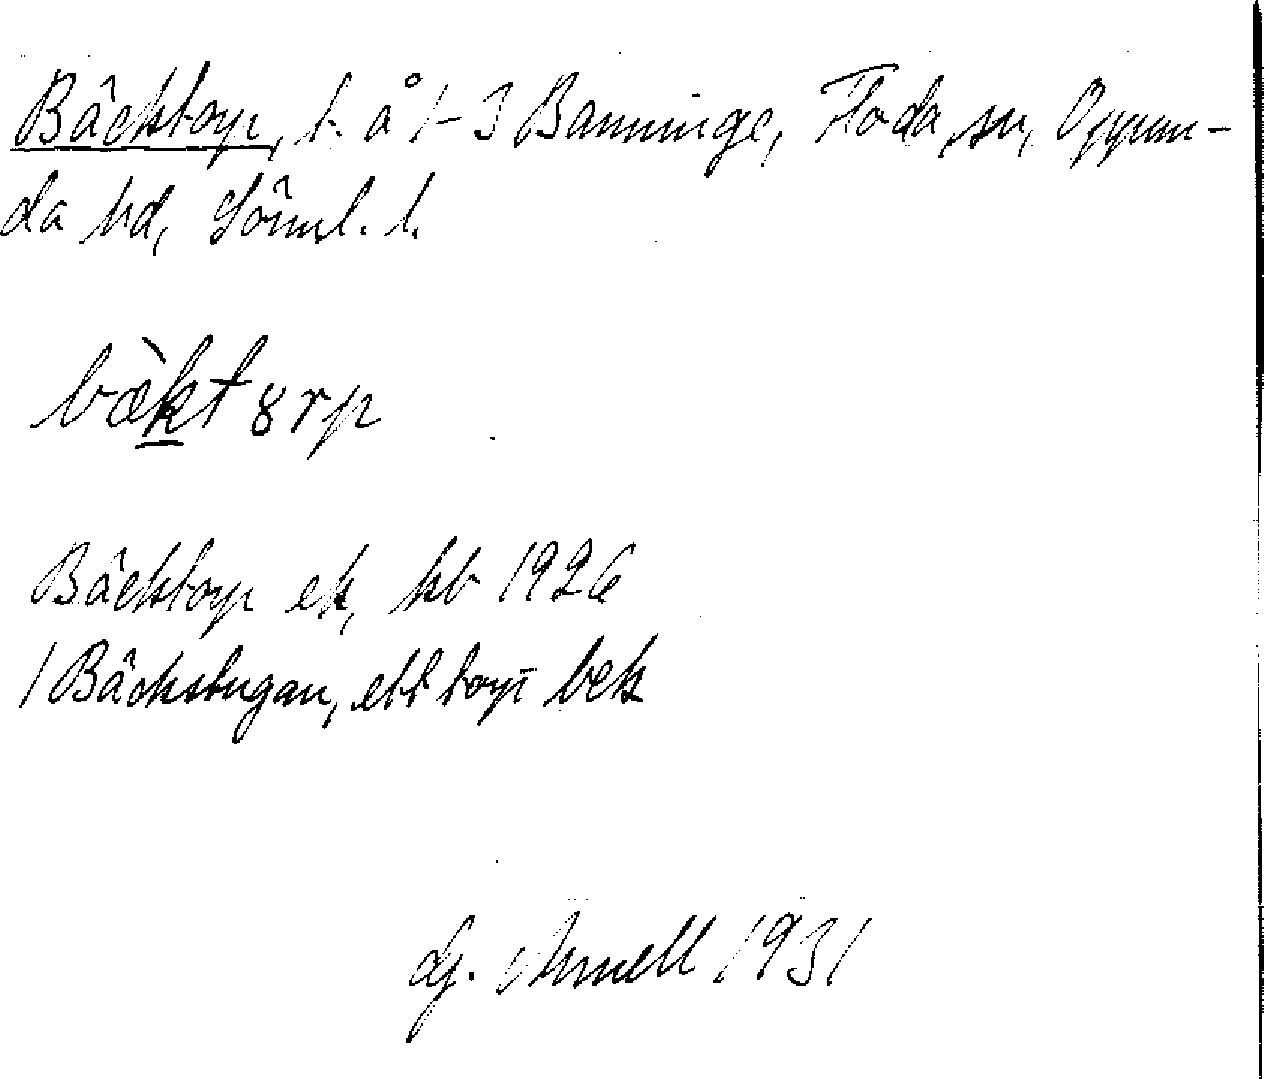 Bäcktorp, t. å 1-3 Banninge, Floda sn, Oppun-
da hd, Söml. l.
bækt8rp
Bäcktorp ek, kb 1926
/ Bäckstugan, ett torp bek
Arnell 1931